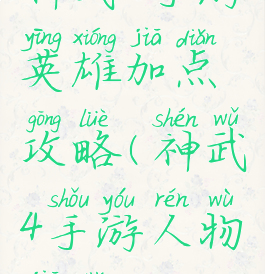 yīng xióng jiā diǎn
英雄加点
gōng lüè shén wǔ
攻略(神武
shǒu yóu rén wù
4手游人物